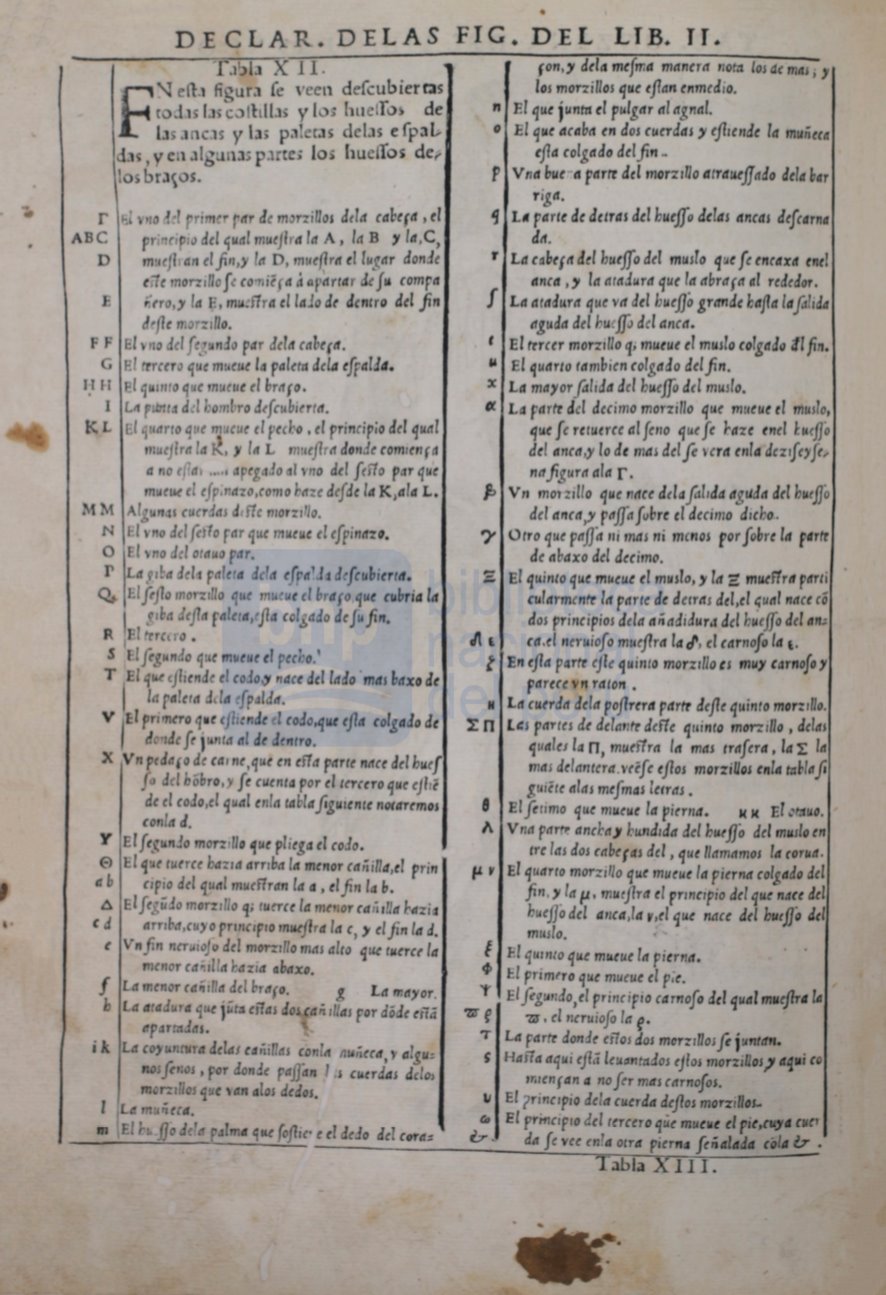 DECLAR. DELAS FIG. DEL LIB. II.
Tabla XII.
EN esta figura se veen descubiertas
todas las costillas y los huessos de
las ancas y las paletas delas espal-
das, y en algunas partes los huessos de-
los braços.
Γ El vno del primer par de morzillos dela cabeça, el
ABC principio del qual muestra la A, la B y la, C,
D muestran el fin, y la D, muestra el lugar donde
este morzillo se comiẽça à apartar de su compa
E ñero, y la E, muestra el lado de dentro del fin
deste morzillo.
FF El vno del segundo par dela cabeça.
G El tercero que mueue la paleta dela espalda.
HH El quinto que mueue el braço.
I La punta del hombro descubierta.
KL El quarto que mueue el pecho, el principio del qual
muestra la K, y la L muestra donde comiença
a no estar apegado al vno del sesto par que
mueue el espinazo, como haze desde la K, ala L.
MM Algunas cuerdas deste morzillo.
N El vno del sesto par que mueue el espinazo.
O El vno del otauo par.
Γ La giba dela paleta dela espalda descubierta.
Q El sesto morzillo que mueue el braço, que cubria la
giba desta paleta, esta colgado de su fin.
R El tercero.
S El segundo que mueue el pecho.
T El que estiende el codo, y nace del lado mas baxo de
la paleta dela espalda.
V El primero que estiende el codo, que esta colgado de
donde se junta al de dentro.
X Vn pedaço de carne, que en esta parte nace del hues
so del hõbro, y se cuenta por el tercero que estiẽ
de el codo, el qual enla tabla siguiente notaremos
conla d.
Y El segundo morzillo que pliega el codo.
Θ El que tuerce hazia arriba la menor cañilla, el prin
ab cipio del qual muestran la a, el fin la b.
Δ El segũdo morzillo q; tuerce la menor cañilla hazia
cd arriba, cuyo principio muestra la c, y el fin la d.
e Vn fin neruioso del morzillo mas alto que tuerce la
menor cañilla hazia abaxo.
f La menor cañilla del braço. g La mayor.
h La atadura que jũta estas dos cañillas por dõde està
apartadas.
ik La coyuntura delas cañillas conla muñeca, y algu-
nos senos, por donde passan las cuerdas delos
morzillos que van alos dedos.
l La muñeca.
m El huesso dela palma que sostiene el dedo del cora=
çon, y dela mesma manera nota los de mas; y
los morzillos que estan enmedio.
n El que junta el pulgar al agnal.
o El que acaba en dos cuerdas y estiende la muñeca
esta colgado del fin.
p Vna buena parte del morzillo atrauessado dela bar
riga.
q La parte de detras del huesso delas ancas descarna
da.
r La cabeça del huesso del muslo que se encaxa enel
anca, y la atadura que la abraça al rededor.
ſ La atadura que va del huesso grande hasta la salida
aguda del huesso del anca.
t El tercer morzillo q; mueue el muslo colgado dl fin.
u El quarto tambien colgado del fin.
x La mayor salida del huesso del muslo.
α La parte del decimo morzillo que mueue el muslo,
que se retuerce al seno que se haze enel huesso
del anca, y lo de mas del se vera enla deziseyse-
na figura ala Γ.
β Vn morzillo que nace dela salida aguda del huesso
del anca, y passa sobre el decimo dicho.
γ Otro que passa ni mas ni menos por sobre la parte
de abaxo del decimo.
Ξ El quinto que mueue el muslo, y la Ξ muestra parti
cularmente la parte de detras del, el qual nace cõ
dos principios dela añadidura del huesso del an-
δ ε ca. el neruioso muestra la δ, el carnoso la ε.
ζ En esta parte este quinto morzillo es muy carnoso y
parece vn raton.
η La cuerda dela postrera parte deste quinto morzillo.
ΣΠ Las partes de delante deste quinto morzillo, delas
quales la Π, muestra la mas trasera, la Σ la
mas delantera. veẽse estos morzillos enla tabla si
guiẽte alas mesmas letras.
θ El setimo que mueue la pierna. κκ El otauo.
Λ Vna parte ancha y hundida del huesso del muslo en
tre las dos cabeças del, que llamamos la corua.
μ ν El quarto morzillo que mueue la pierna colgado del
fin, y la μ, muestra el principio del que nace del
huesso del anca, la ν, el que nace del huesso del
muslo.
ξ El quinto que mueue la pierna.
Φ El primero que mueue el pie.
Υ El segundo, el principio carnoso del qual muestra la
ϖ ρ ϖ, el neruioso la ρ.
τ La parte donde estos dos morzillos se juntan.
ς Hasta aqui està leuantados estos morzillos, y aqui co
miençan a no ser mas carnosos.
υ El principio dela cuerda destos morzillos.
ω El principio del tercero que mueue el pie, cuya cuer
& da se vee enla otra pierna señalada cõla &.
Tabla XIII.